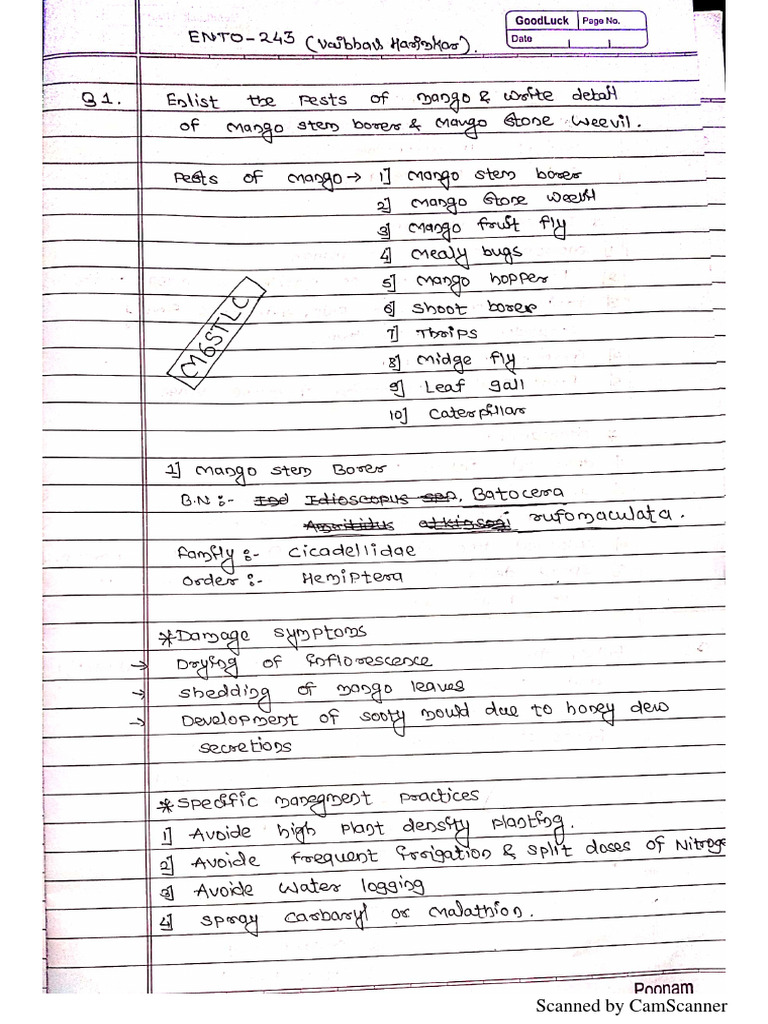 GoodLuck Page No.
Date
ENTO-243 (Vaibhav Harinkar).
Q1. Enlist the Pests of mango & write detail
of mango stem borer & mango stone weevil.
Pests of mango → 1] mango stem borer
2] mango stone weevil
3] mango fruit fly
4] mealy bugs
5] mango hopper
6] shoot borer
7] Thrips
8] midge fly
9] Leaf gall
10] caterpillar
M6STLC
1] mango stem Borer
B.N :- Idioscopus spp, Batocera
Amritidus atkinsoni rufomaculata.
Family :- Cicadellidae
Order :- Hemiptera
*Damage symptoms
→ Drying of inflorescence
→ shedding of mango leaves
→ Development of sooty mould due to honey dew
secretions
*Specific manegment practices
1] Avoide high plant density planting.
2] Avoide frequent irrigation & split doses of Nitroge
3] Avoide water logging
4] spray carbaryl or malathion.
Poonam
Scanned by CamScanner